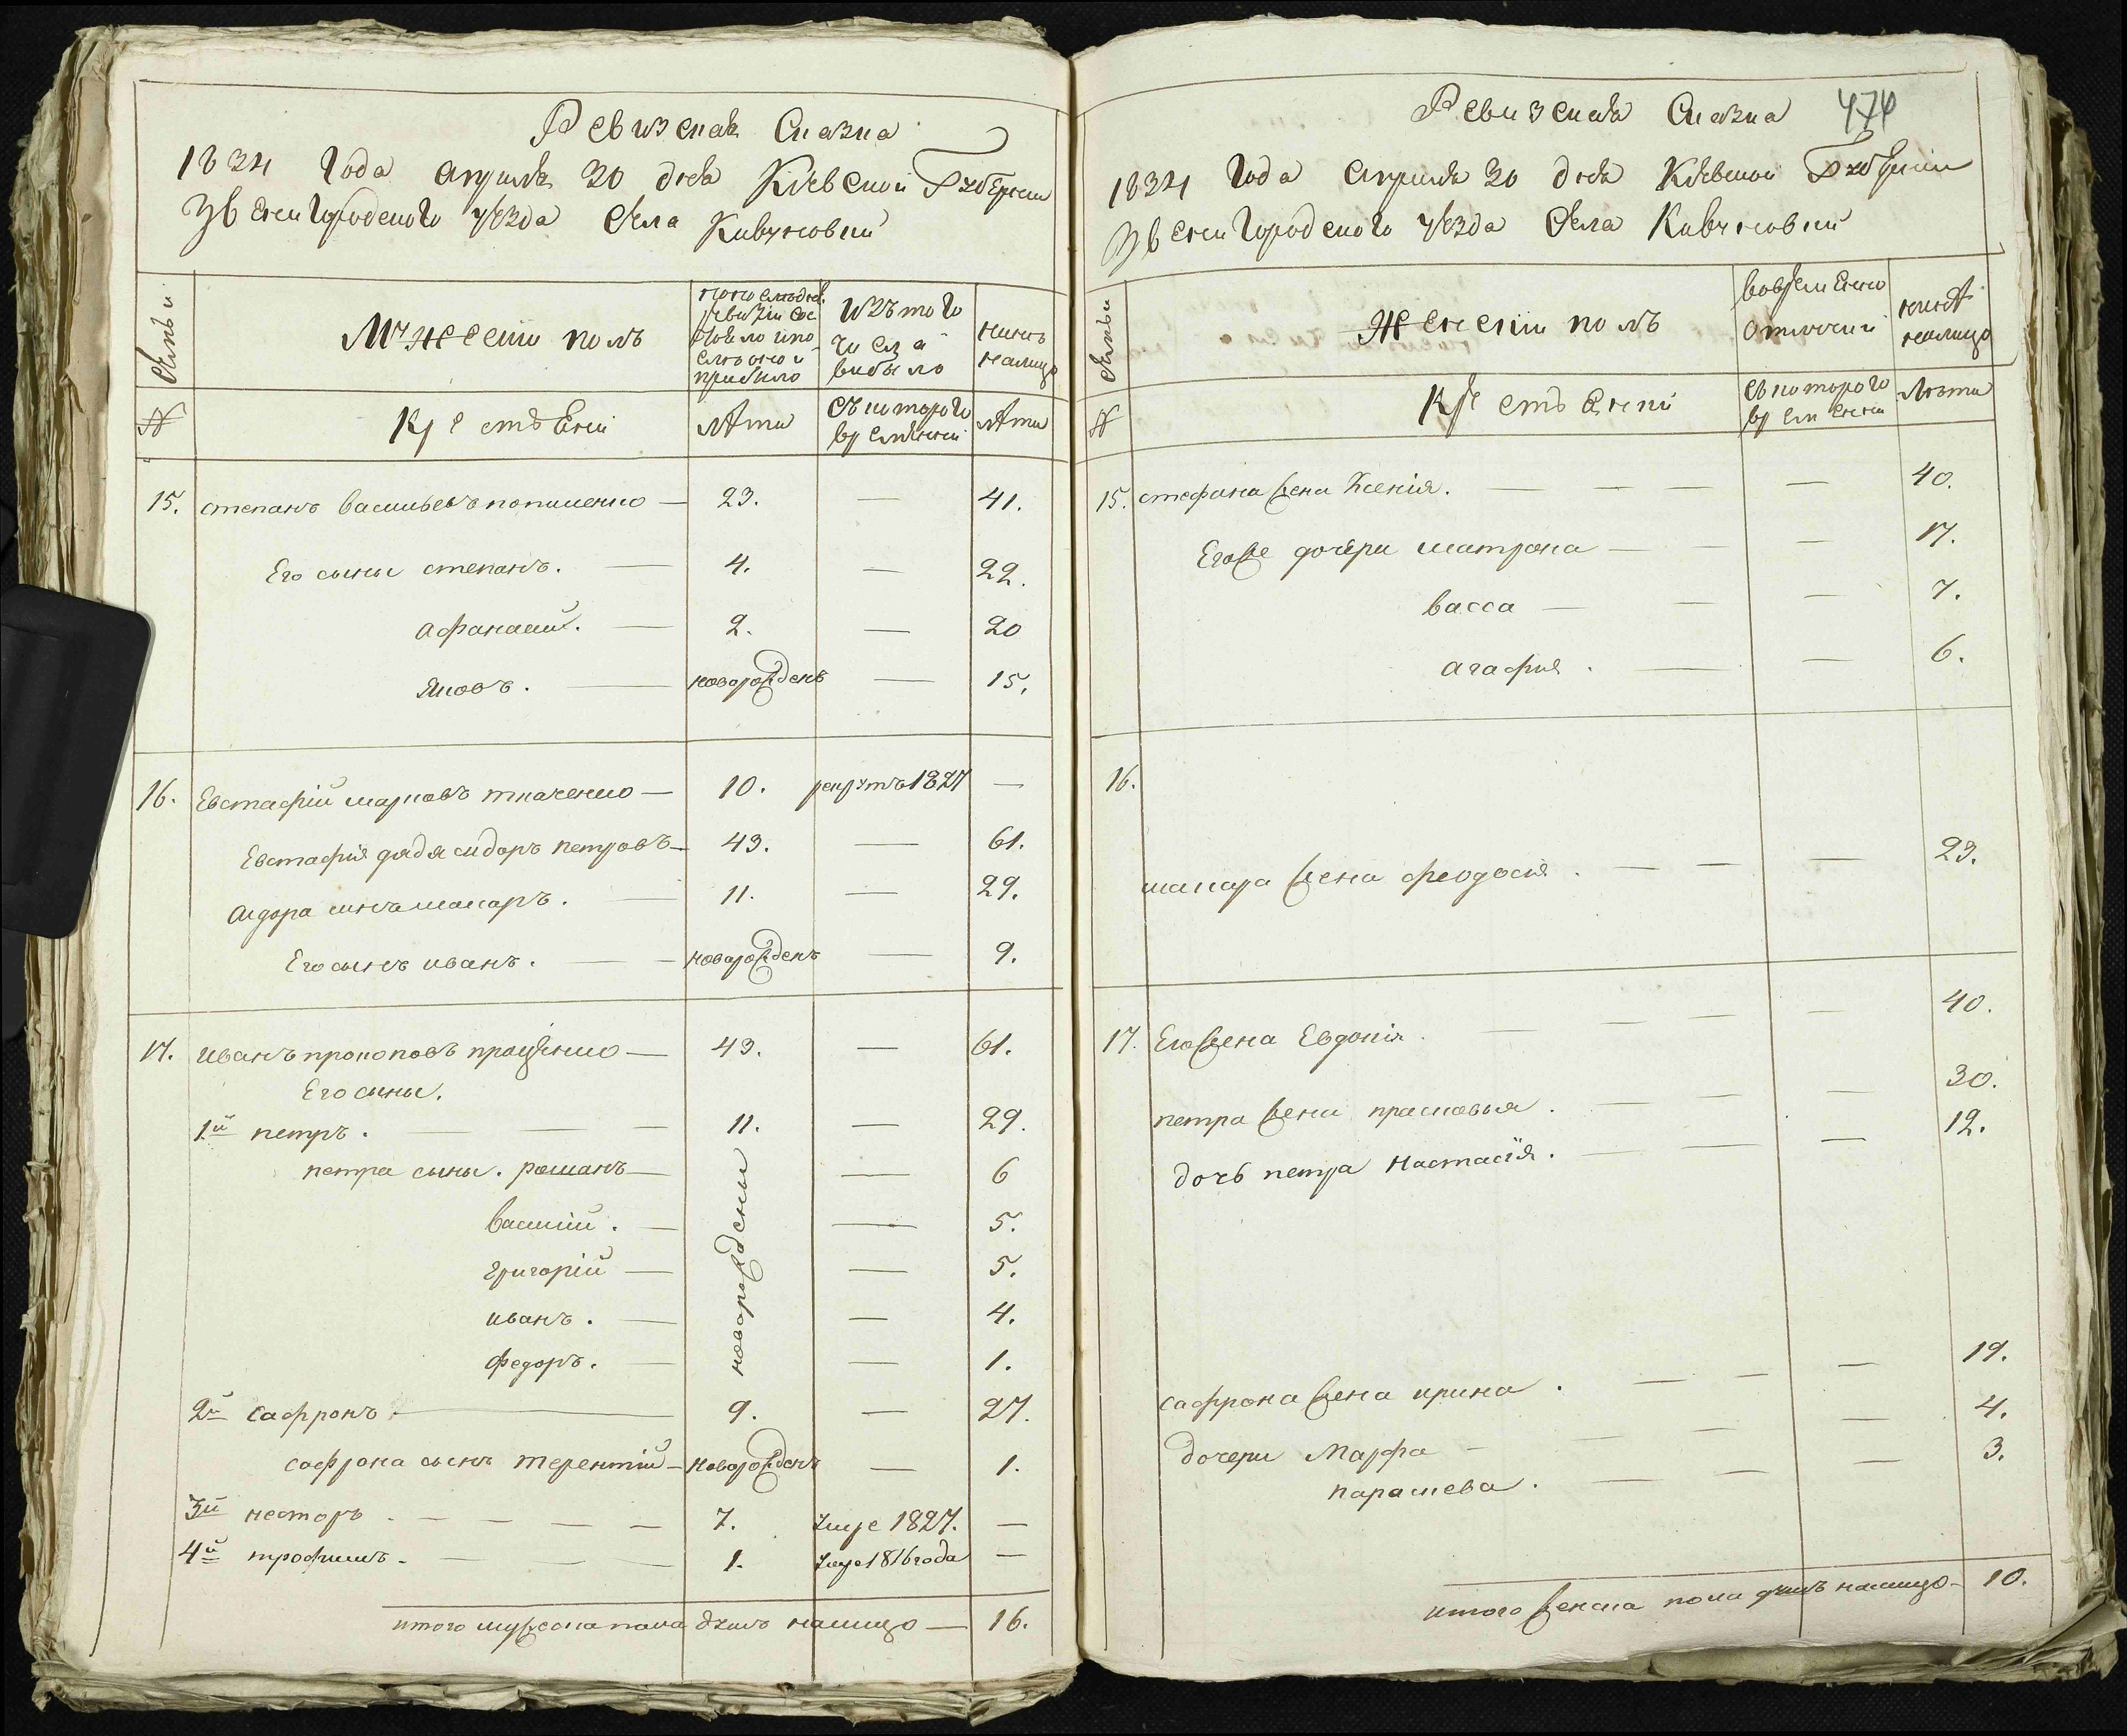 Ревизская Сказка
1834 Года Апреля 30 дня Кіевской Губернии
Звенигородского уезда Села Кивчновки
Семьи
Мужески полъ
по последней ревизіи состояло и после оной прибыло
Изътого числа выбыло
нынѣ налицо
№
Крестьяни
лѣта
съкоторого времянни
лѣта
15. степанъ васильевъ попиленко — 23. — 41.
Его сыны степанъ. — 4. — 22.
афанасий. — 2. — 20
яковъ. — новорожденъ — 15.
16. Евстафій марковъ ткаченко — 10. рекрутъ 1827 —
Евстафия дядя сидоръ петровъ — 43. — 61.
сидора сынъ макаръ. — 11. — 29.
Его сынъ иванъ. — новорожденъ — 9.
17. иванъ прокоповъ проценко — 43. — 61.
Его сыны.
1й петръ. — — — 11. — 29.
петра сыны. романъ — — 6
василий. — — 5.
григорій — — 5.
иванъ. — — 4.
федоръ. — — 1.
новорожденны
2й сафронъ — 9. — 27.
сафрона сынъ терентий — новорожденъ — 1.
3й несторъ. — — — — 7. умре 1827. —
4й трофимъ. — — — 1. умре 1816 года —
итого мужеска пола душъ налицо — 16.
474
Ревизская Сказка
1834 Года Апреля 30 дня Кіевской Губернии
Звенигородского уезда Села Кивчновки
Семьи
Женскій полъ
вовремянно отлучки
нынѣ налицо
№
Крестьянки
съкоторого времянни
лѣта
15. стефана жена Ксенія. — — — — 40.
Егоже дочери матрона — — — 17.
васса — — — 7.
агафия. — — — 6.
16.
макара жена феодосія. — — — 23.
17. Его жена Евдокія. — — — — 40.
петра жена прасковья. — — — 30.
дочь петра настасія. — — — 12.
сафрона жена ирина. — — — 19.
дочери Марфа — — — — 4.
параскева. — — — 3.
итого женска пола душъ налицо — 10.